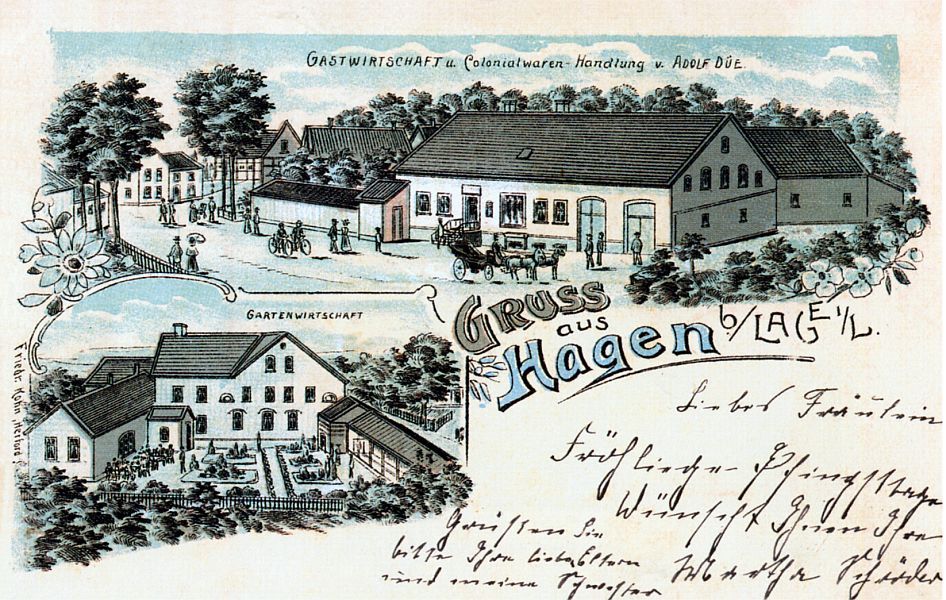 GASTWIRTSCHAFT u. Colonialwaren-Handlung v. ADOLF DÜE.
GARTENWIRTSCHAFT
GRUSS
aus
Hagen b/LAGE i/L.
Friedr. Kohn, Herford
Liebes Fräulein
Fröhliche Pfingsttage
Wünscht Ihnen Ihre
Martha Schröder
Grüßen Sie
bitte Ihre lieben Eltern
und meine Schwester